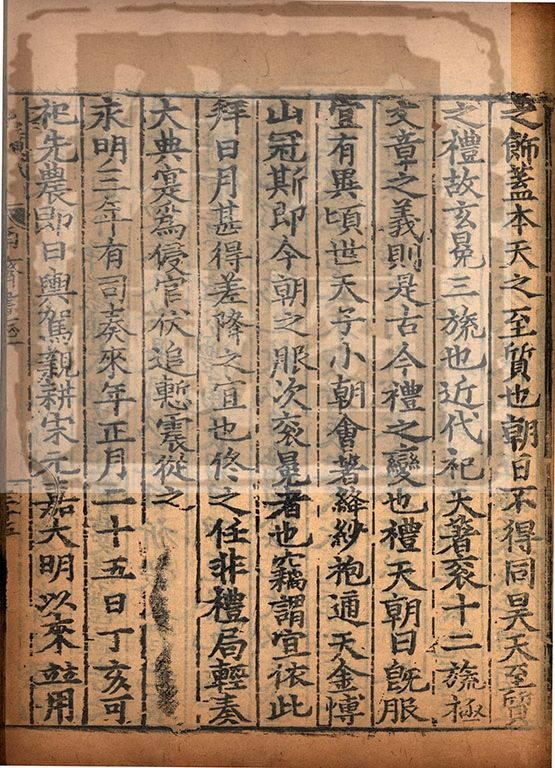 之飾蓋本天之至質也朝日不得同昊天至質
之禮故玄冕三旒也近代祀天著衮十二旒極
文章之義則是古今禮之變也禮天朝日旣服
宜有異頃世天子小朝會著絳紗袍通天金愽
山冠斯即今朝之服次衮冕者也竊謂宜依此
拜日月甚得差降之宜也佟之任非禮局輕奏
大典寔爲侵官伏追慙震從之
永明三年有司奏來年正月二十五日丁亥可
祀先農即日輿駕親耕宋元嘉大明以來並用
南齊書